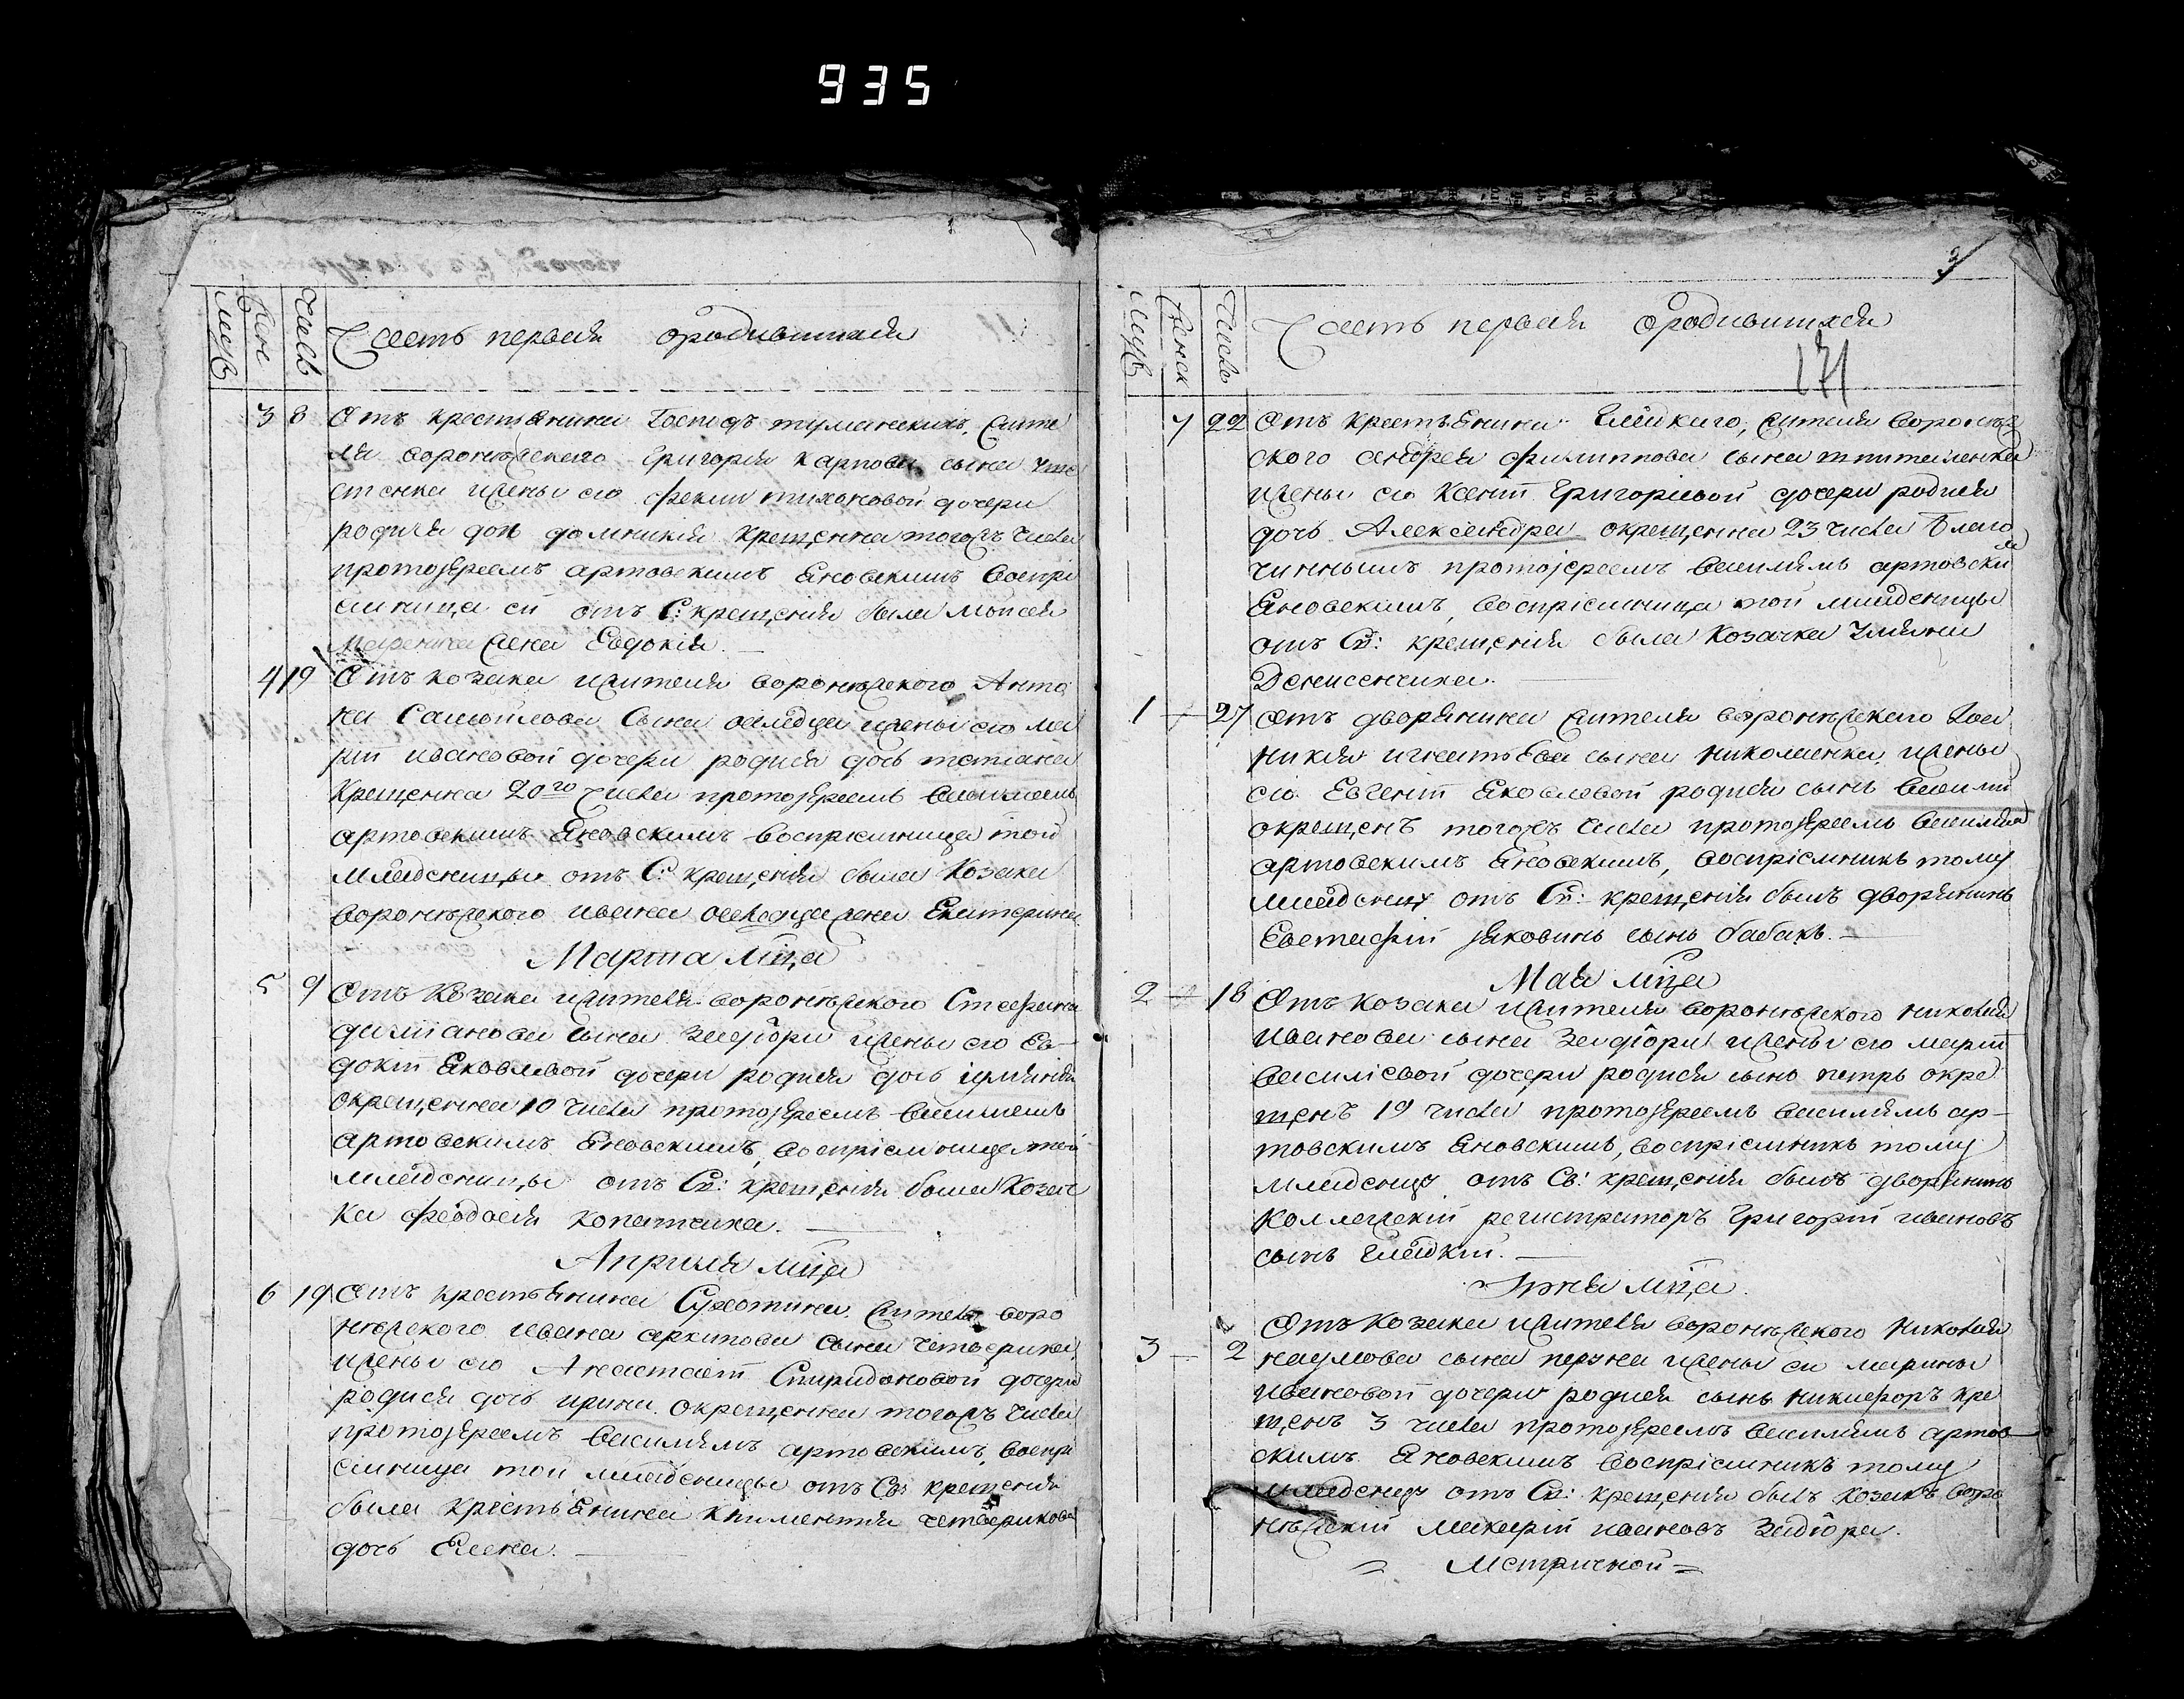 935
мужъ
Жен
число
Часть первая ородившихся
3 8 Отъ крестьянина Господъ туманскихъ, жите
ля воронѣжского Григорія Карпова сына
жены его феклы тихоновой дочери
родися дочь домникія крещенна тогожъ числа
протоіереемъ артовскимъ Яновскимъ воспрі
емница ей отъ С: крещенія была Мойсея
жена Евдокія.
4 19 Отъ козака жителя воронѣжского Анто
на Самойлова Сына жены его ма
ріи ивановой дочери родися дочь татіана
Крещенна 20го числа протоіереемъ василіемъ
артовскимъ Яновскимъ воспріемница той
младеницы отъ С: крещенія была Козака
воронѣжского ивана жена Екатерина
Марта мца
5 9 Отъ Козака жителя воронѣжского Стефана
диміанова сына Заидіоры жены его Ев
докіи Яковлевой дочери родися дочь іуліянія
окрещенна 10 числа протоіереемъ василіемъ
артовскимъ Яновскимъ, воспріемница той
младеницы отъ Св: крещенія была Козач
ка феодосія копатчиха.
Априля мца
6 19 Отъ крестьянина Сребтина жителя воро
нѣжского ивана архипова сына четверика
жены его Анастасіи Спиридоновой дочери
родися дочь ирина окрещенна тогожъ числа
протоіереемъ василіемъ артовскимъ, воспрі
емница той младеницы отъ Св: крещенія
была крестьянина климентія четверикова
дочь Елена.
3
мужъ
Женск
число
Часть первая ородившихся
171
7 22 Отъ крестьянина Глѣдкаго, жителя воронѣж
ского андрея филиппова сына
жены его Ксеніи Григоріевой дочери родися
дочь Александра окрещенна 23 числа Благо
чиннымъ протоіереемъ василіемъ артовски
Яновскимъ, воспріемница той младеницы
отъ Св: крещенія была Козачка Уліяна
Денисенчиха.
1 27 Отъ дворянина жителя воронѣжского Іоа
никія игнатьева сына николаенка, жены
его Евгеніи Яковлевой родися сынъ василій
окрещенъ тогожъ числа протоіереемъ василіем
артовскимъ Яновскимъ, воспріемникъ тому
младенцу отъ Св: крещенія былъ дворянинъ
Евстафій яковинъ сынъ бабакъ.
Мая мца
2 18 Отъ козака жителя воронѣжского николая
иванова сына Заидіоры жены его маріи
василіевой дочери родися сынъ петръ окре
щенъ 19 числа протоіереемъ василіемъ ар
товскимъ Яновскимъ, воспріемникъ тому
младенцу отъ Св: крещенія былъ дворянинъ
Коллежскій регистраторъ Григорій ивановъ
сынъ Глѣдкій.
Іюня мца
3 2 Отъ козака жителя воронѣжского николая
наумова сына перуна жены его марины
ивановой дочери родися сынъ никифоръ кре
щенъ 3 числа протоіереемъ василіемъ артов
скимъ Яновскимъ воспріемникъ тому
младенцу отъ Св: крещенія былъ козакъ воро
нѣжскій макарій ивановъ Заидіора.
Метричной